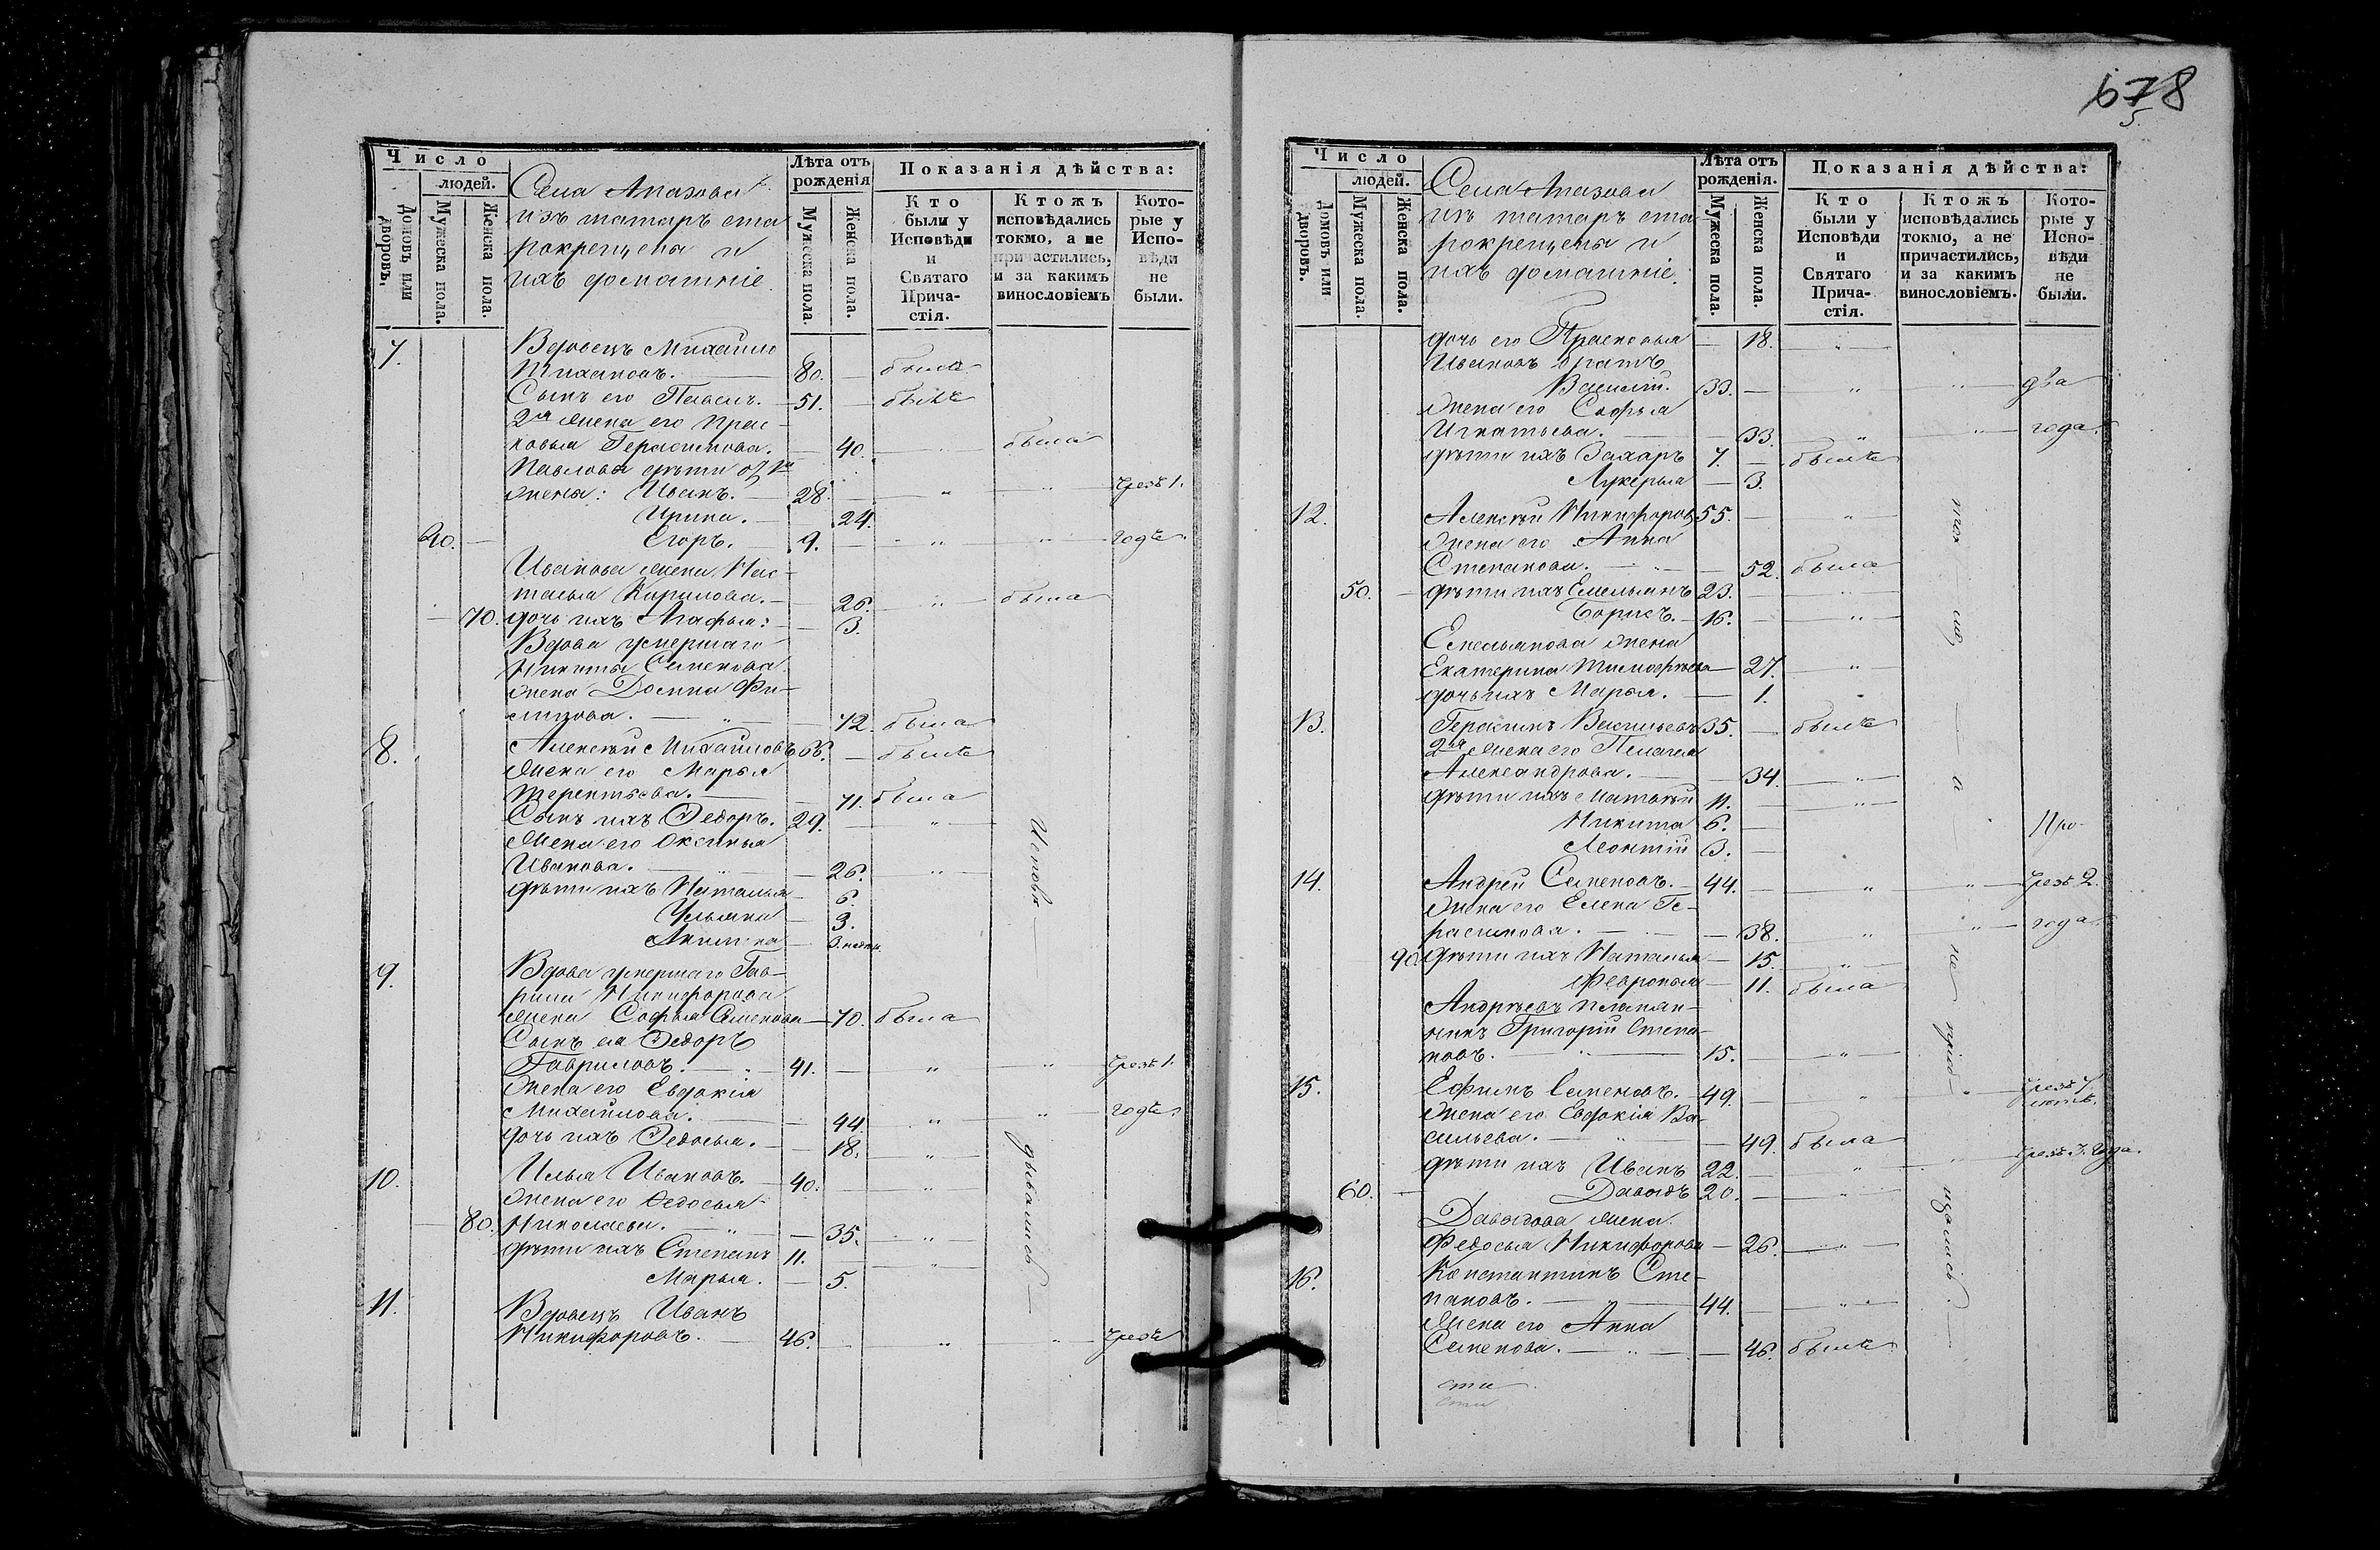 678
5.
Число
людей.
Домовъ или дворовъ.
Мужеска пола.
Женска пола.
Села Апазова
изъ татаръ ста
рокрещены и
ихъ домашніе.
Лѣта отъ рожденія
Мужеска пола.
Женска пола.
Показанія дѣйства:
Кто были у Исповѣди и Святаго Прича-стія.
Ктожъ исповѣдались токмо, а не причастились, и за какимъ винословіемъ
Кото-рые у Испо-вѣди не были.
7. Вдовецъ Михайло
Тихановъ. 80. — былъ
Сынъ его Павелъ. — 51. — былъ
2я жена его Прас-
ковья Герасимова. — 40. была
Павловы дѣти отъ 1й
жены: Иванъ. — 28. — „ „ чрезъ 1.
Ирина. — 24.
40. — Егоръ. — 9. — „ „ годъ.
Иванова жена Нас-
тасья Кирилова. — 26. „ была
— 70. дочь ихъ Агафья: — 3.
Вдова умершаго
Никиты Семенова
жена Домна Фи-
липова. — „ — 72. была
8. Алексѣй Михайловъ 66. — былъ
Жена его Марья
Терентьева. — 71. была
Сынъ ихъ Ѳедоръ. 29. — „
Жена его Оксинья
Иванова. — „ — 26. „
дѣти ихъ Наталья — 6.
Ульяна — 3.
Акилина — 3. недѣли.
9. Вдова умершаго Гав-
рили Никифорова
жена Софья Семенова — 70. была
Сынъ ея Ѳедоръ
Гавриловъ. — „ 41. — „ „ чрезъ 1.
Жена его Евдокія
Михайлова. — 44. „ „ годъ.
дочь ихъ Ѳедосья. — 18. „
10. Илья Ивановъ. 40. — „
Жена его Ѳедосья
— 80. Николаева. — „ — 35. „
дѣти ихъ Степанъ 11. — „
Марья. — 5.
11. Вдовецъ Иванъ
Никифоровъ. — 46. — „ „ чрезъ
Исповѣ — дывались —
Число
людей.
Домовъ или дворовъ.
Мужеска пола.
Женска пола.
Села Апазова
изъ татаръ ста
рокрещены и
ихъ домашніе.
Лѣта отъ рожденія.
Мужеска пола.
Женска пола.
Показанія дѣйства:
Кто были у Исповѣди и Святаго Прича-стія.
Ктожъ исповѣдались токмо, а не причастились, и за какимъ винословіемъ.
Кото-рые у Испо-вѣди не были.
дочь его Прасковья — 18. „
Ивановъ братъ
Василій. 33. — „ „ два
Жена его Софья
Игнатьева. — 33. „ „ года.
дѣти ихъ Захаръ 7. — былъ
Лукерья — 3.
12. Алексѣй Никифоровъ 55. — „
Жена его Анна
Степанова. — „ — 52. была
50. — дѣти ихъ Емельянъ 23. — „
Борисъ. — 16. — „
Емельянова жена
Екатерина Тимофѣева — 27. „
дочь ихъ Марья. — 1.
13. Герасимъ Васильевъ 35. — былъ
2я жена его Пелагея
Александрова. — 34. „
дѣти ихъ Матвѣй 11. — „
Никита 6. —
Леонтій 3. —
14. Андрей Семеновъ. — 44. — „ „ чрезъ 2.
Жена его Елена Ге-
расимова. — 38. „ „ года.
90. дѣти ихъ Наталья — 15. „
Февронья — 11. была
Андрѣевъ племян-
никъ Григорій Степа-
новъ. — „ — 15. — „
15. Ефимъ Семеновъ. 49. — „ „ чрезъ 7. лѣтъ.
Жена его Евдокія Ва-
сильева. — „ — 49. была
дѣти ихъ Иванъ 22. — „ „ чрезъ 3. года.
60. — Давыдъ 20. — „
Давыдова жена
Федосья Никифорова — 26. „
16. Константинъ Сте-
пановъ. — „ — 44. — „
Жена его Анна
Семенова. — „ — 46. была
не — прі — щались. —